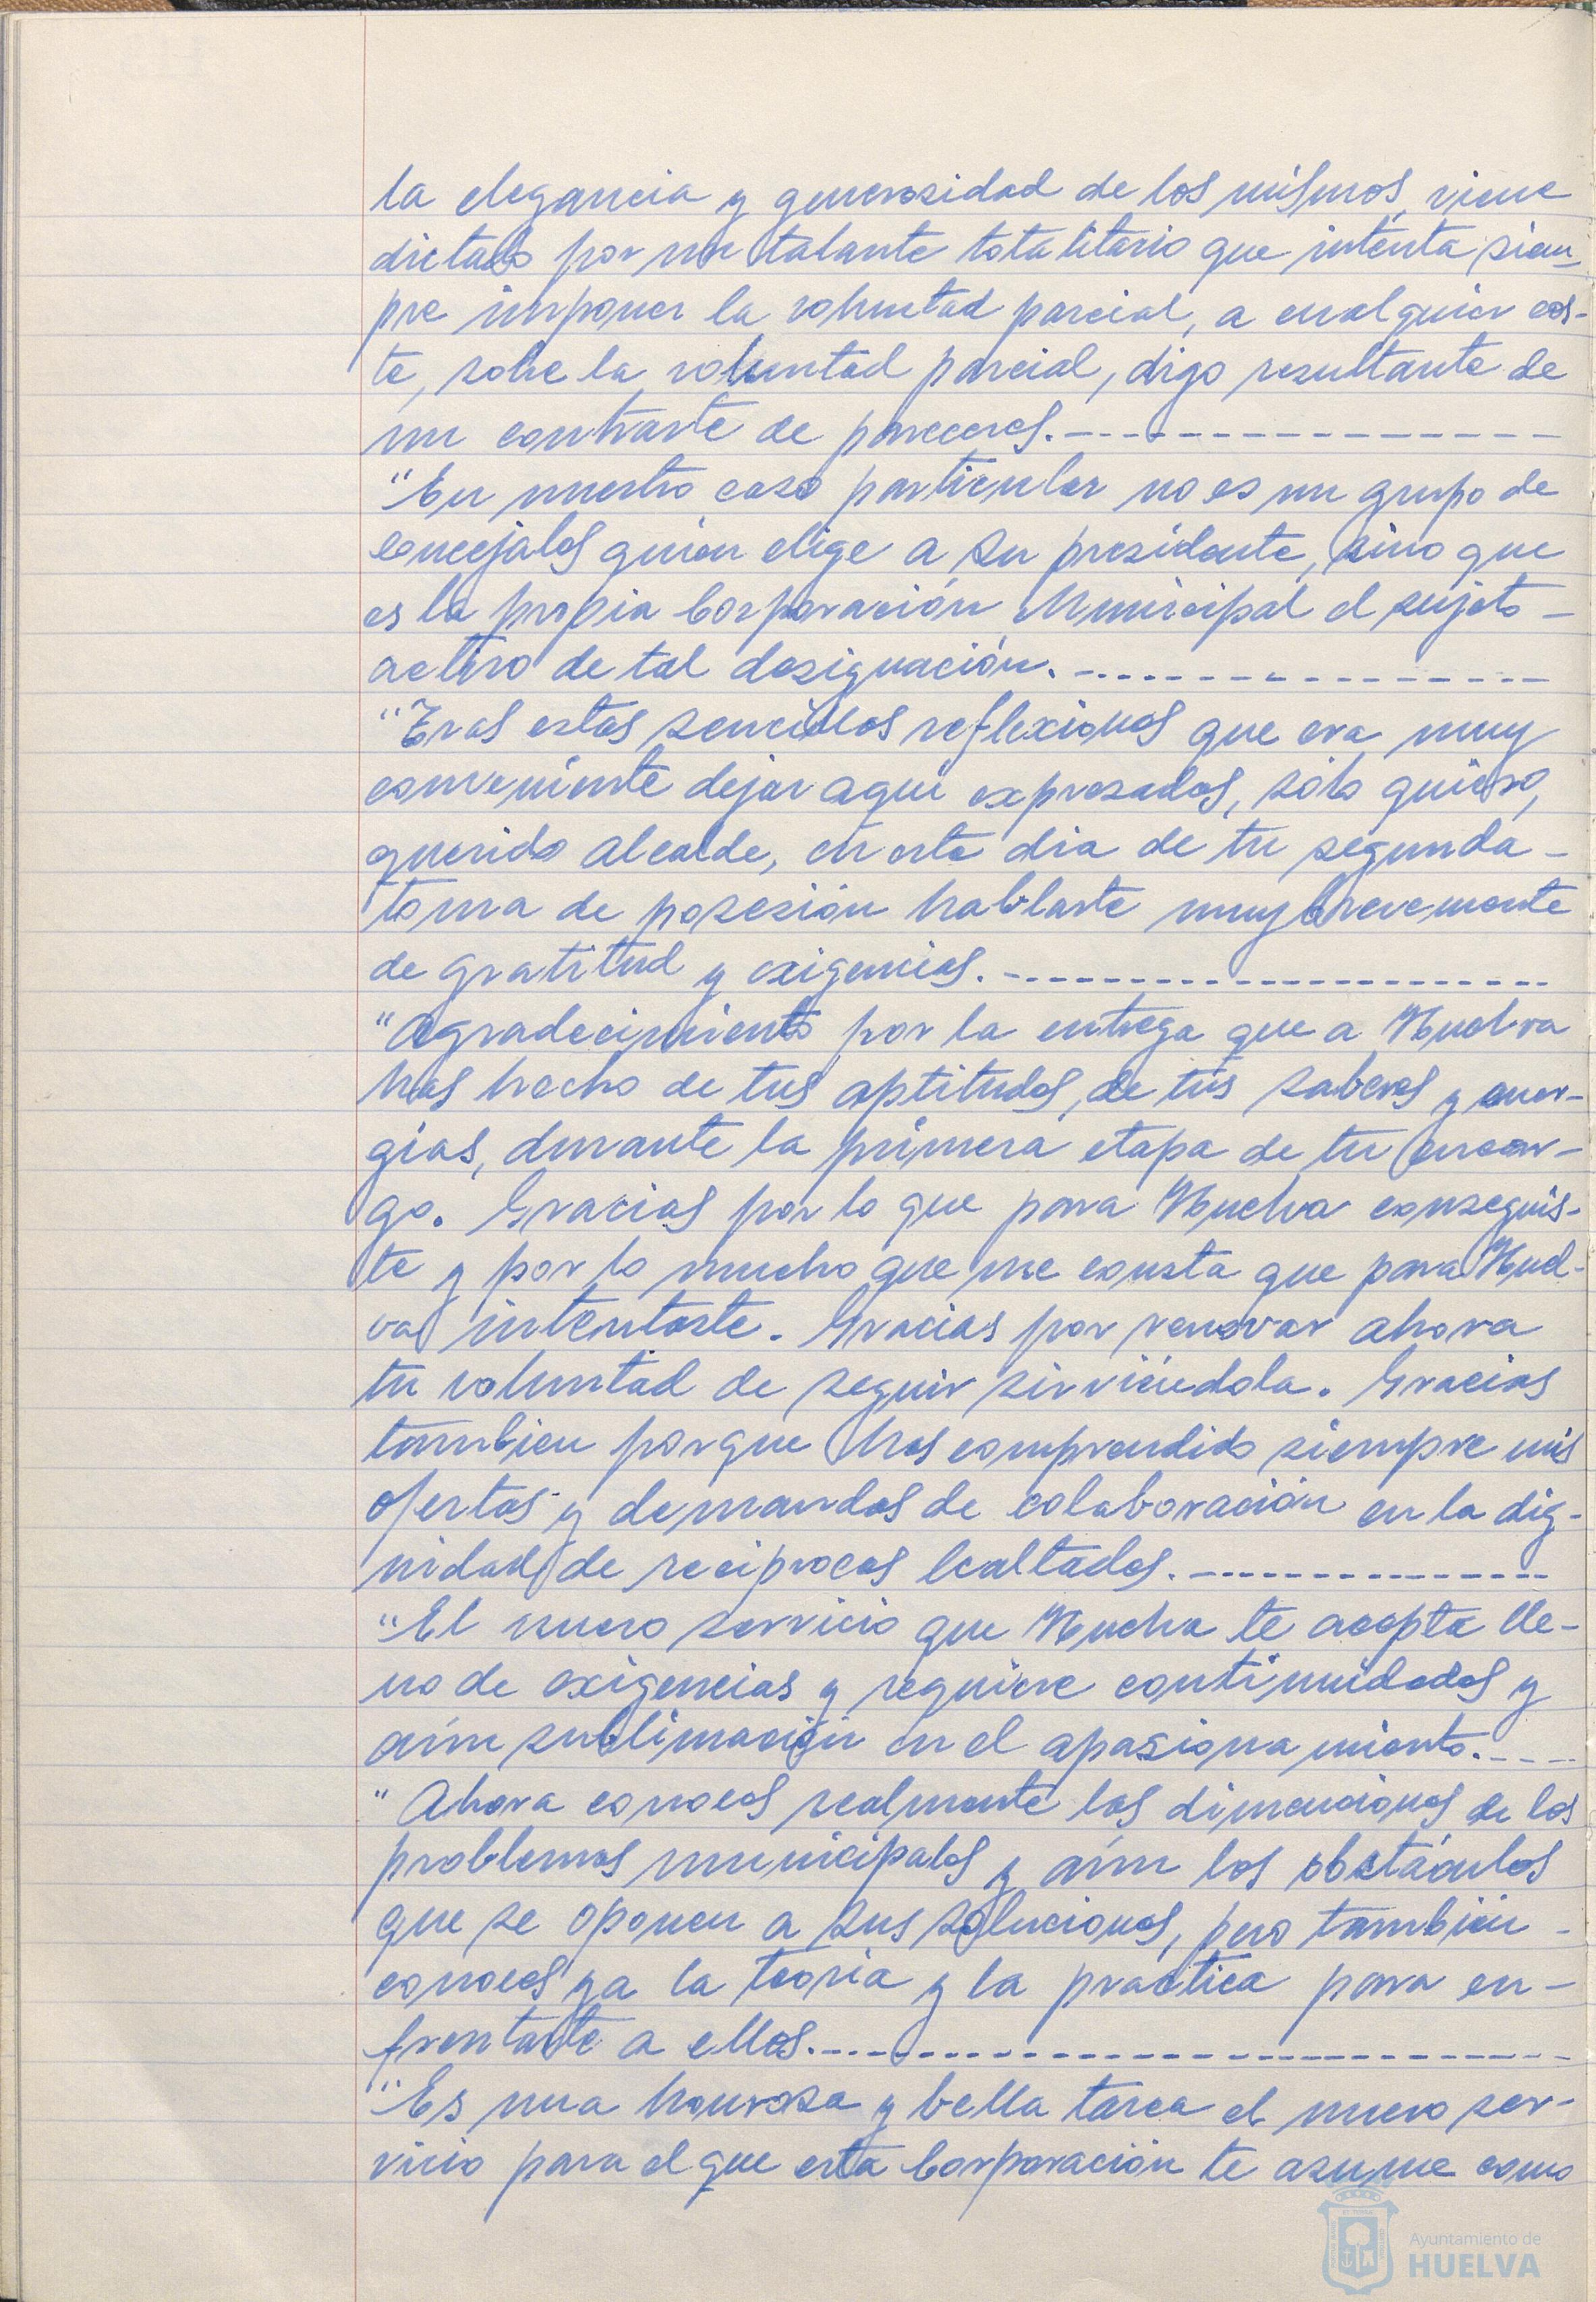 la elegancia y generosidad de los mismos, viene
dictado por un talante totalitario que intenta siem-
pre imponer la voluntad parcial, a cualquier cos-
te, sobre la voluntad parcial, digo resultante de
un contraste de pareceres.
"En nuestro caso particular no es un grupo de
concejales quien elige a su presidente, sino que
es la propia Corporación Municipal el sujeto -
activo de tal designación.
"Tras estas sencillas reflexiones que era muy
conveniente dejar aquí expresadas, sólo quiero,
querido alcalde, en este dia de tu segunda -
toma de posesión hablarte muy brevemente
de gratitud y exigencias.
"Agradecimiento por la entrega que a Huelva
has hecho de tus aptitudes, de tus saberes y ener-
gias, durante la primera etapa de tu encar-
go. Gracias por lo que para Huelva conseguis-
te y por lo mucho que me consta que para Huel-
va intentaste. Gracias por renovar ahora
tu voluntad de seguir sirviéndola. Gracias
tambien porque has comprendido siempre mis
ofertas y demandas de colaboración en la dig-
nidad de reciprocas lealtades.
"El nuevo servicio que Huelva te acepta lle-
no de exigencias y requiere continuidades y
aún sublimación en el apasionamiento.
"Ahora conoces realmente las dimenciones de los
problemas municipales y aún los obstáculos
que se oponen a sus soluciones, pero también -
conoces ya la teoria y la practica para en-
frentarte a ellos.
"Es una honrosa y bella tarea el nuevo ser-
vicio para el que esta Corporación te asume como
Ayuntamiento de
HUELVA